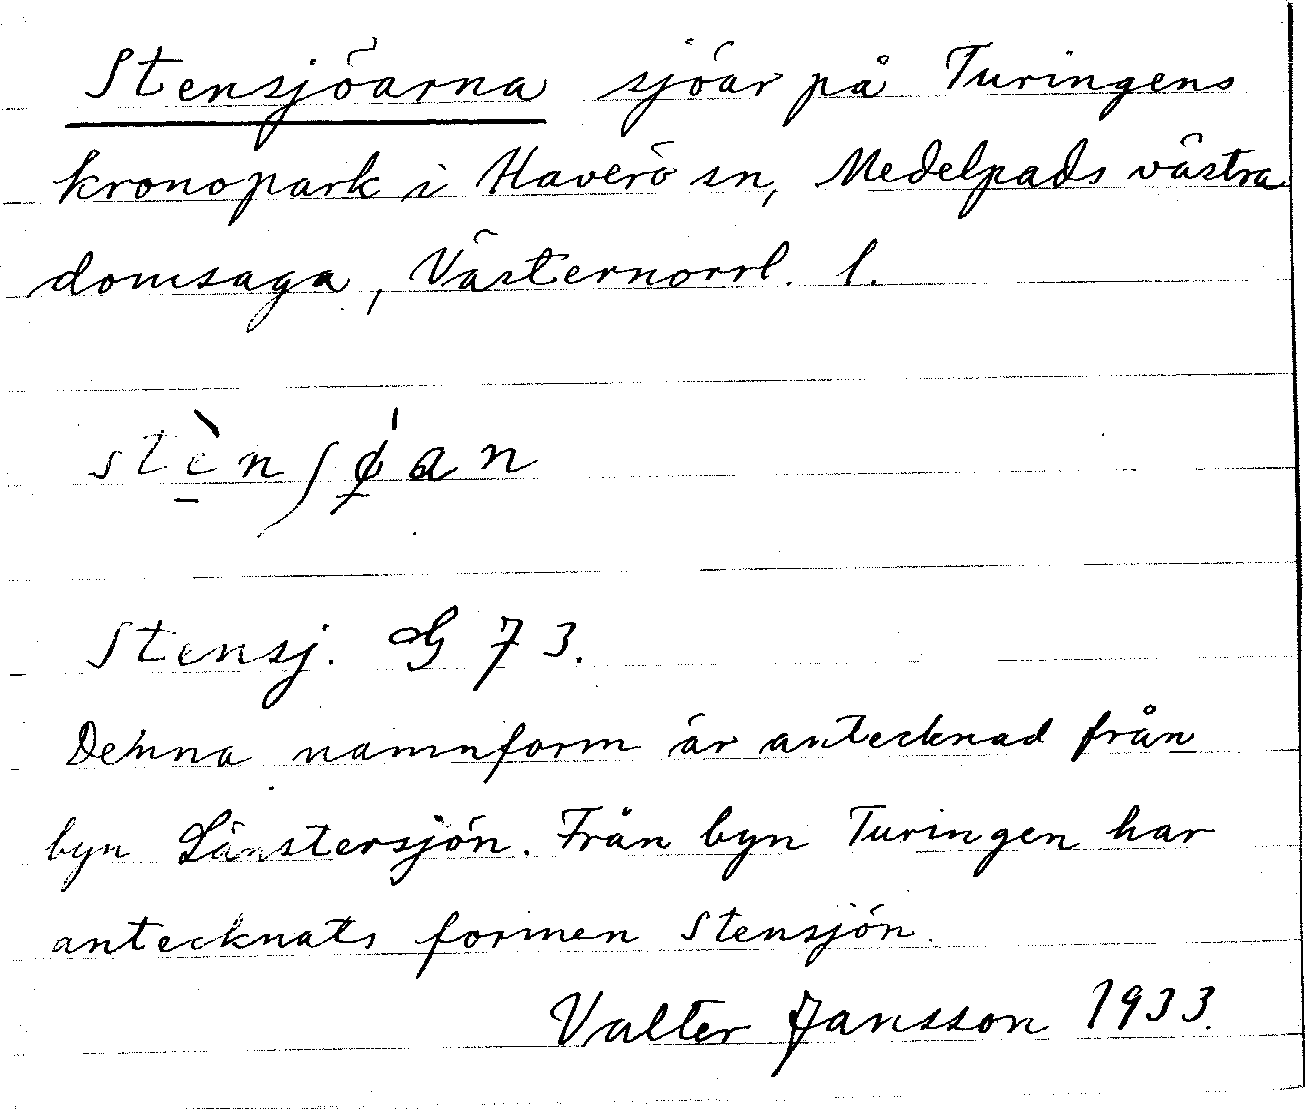 Stensjöarna sjöar på Turingens
kronopark i Haverö sn, Medelpads västra
domsaga, Västernorrl. l.
stè̱nʃǿ̱an
Stensj. G 73.
Denna namnform är antecknad från
byn Länstersjön. Från byn Turingen har
antecknats formen Stensjön.
Valter Jansson 1933.